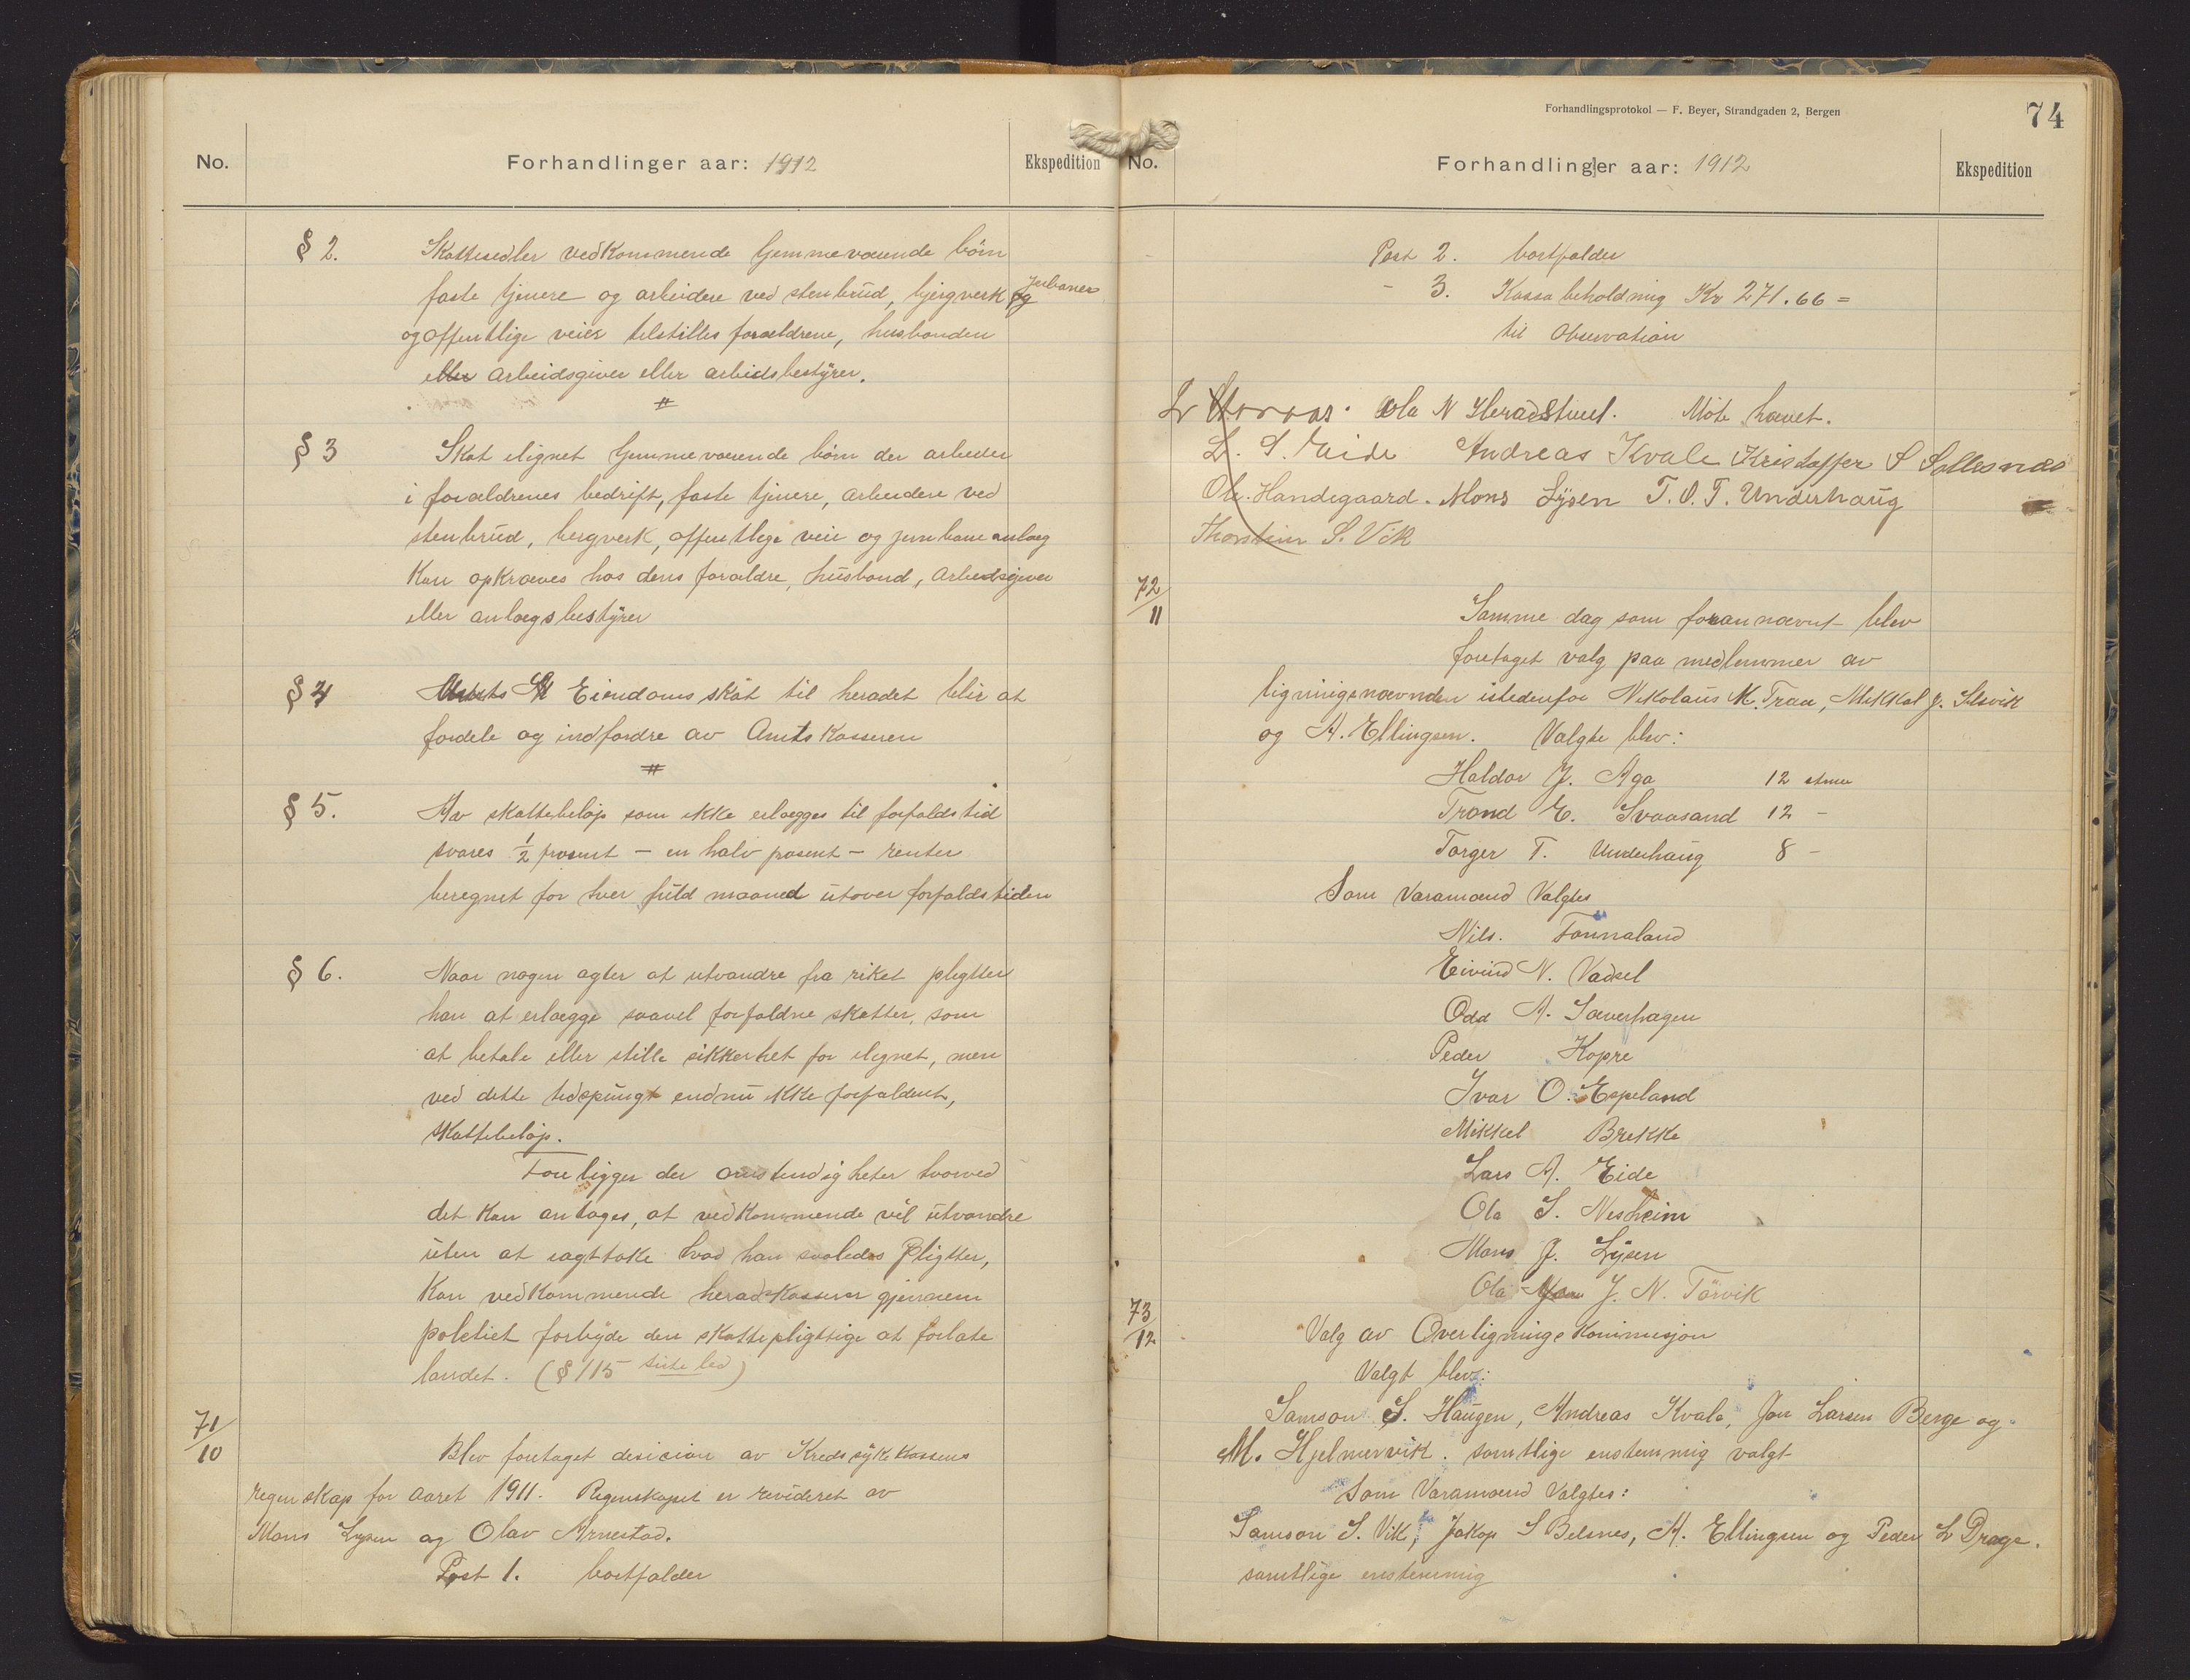 No.
Forhandlinger aar: 1912
Ekspedition
§ 2. Skattesedler vedkommende hjemmeværende børn
faste tjenere og arbeidere ved stenbrud, bjergverk og
jernbaner
og offentlige veier tilstilles forældrene, husbonden
eller arbeidsgiver eller arbeidsbestyrer.
§ 3 Skat ilignet hjemmeværende børn der arbeider
i forældrenes bedrift, faste tjenere, arbeidere ved
stenbrud, bergverk, offentlige veie og jernbaneanlæg
kan opkræves hos deres forældre, husbond, arbeidsgiver
eller anlægsbestyrer
§ 4 Eiendomsskat til heradet blir at
fordele og indfordre av Amtskassereren
§ 5. Av skattebeløp som ikke erlægges til forfaldstid
svares 1/2 prosent - en halv prosent - renter
beregnet for hver fuld maaned utover forfaldstiden
§ 6. Naar nogen agter at utvandre fra riket pligtter
han at erlægge saavel forfaldne skatter, som
at betale eller stille sikkerhet for ilignet, men
ved dette tidspungt endnu ikke forfaldent,
skattebeløp.
Foreligger der omstendigheter hvorved
det kan antages, at vedkommende vil utvandre
uten at iagttake hvad han saaledes pligtter,
kan vedkommende heradskasserer gjennem
politiet forbyde den skattepligttige at forlate
landet. (§ 115 siste led)
71/10
Blev foretaget desision av Kredssykekassens
regenskap for aaret 1911. Regenskapet er revideret av
Mons Lysen og Olav Arnestad.
Post 1. bortfalder
Forhandlingsprotokol — F. Beyer, Strandgaden 2, Bergen
74
No.
Forhandlinger aar: 1912
Ekspedition
Post 2. bortfalder
- 3. Kassabeholdning Kr 271.66 =
til Observation
Ola N Heradstveit. Møte hævet.
L. S. Eide Andreas Kvale Kristaffer S Sollesnæs
Ole Handegaard. Mons Lysen T. O. T. Underhaug
Thorstein S. Vik
72/11
Samme dag som forannævnt blev
foretaget valg paa medlemmer av
ligningsnævnden istedenfor Nikolaus M. Traa, Mikkal J. Selsvik
og A. Ellingsen. Valgte blev:
Haldor J. Aga 12 stmr
Trond E. Svaasand 12 -
Torger T. Underhaug 8 -
Som Varamænd Valgtes
Nils. Fonnaland
Eivind N. Vadsel
Odd A. Sæverhagen
Peder Kopre
Ivar O. Espeland
Mikkel Brekke
Lars A. Eide
Ola S. Nesheim
Mons J. Lysen
Ola J. N. Tørvik
73/12
Valg av Overligningskommisjon
Valgt blev:
Samson S. Haugen, Andreas Kvale, Jon Larsen Berge og
M. Hjelmervik. samtlige enstemmig valgt
Som Varamænd Valgtes:
Samson S. Vik, Jakop S Belsnes, A. Ellingsen og Peder L Drage.
samtlige enstemmig